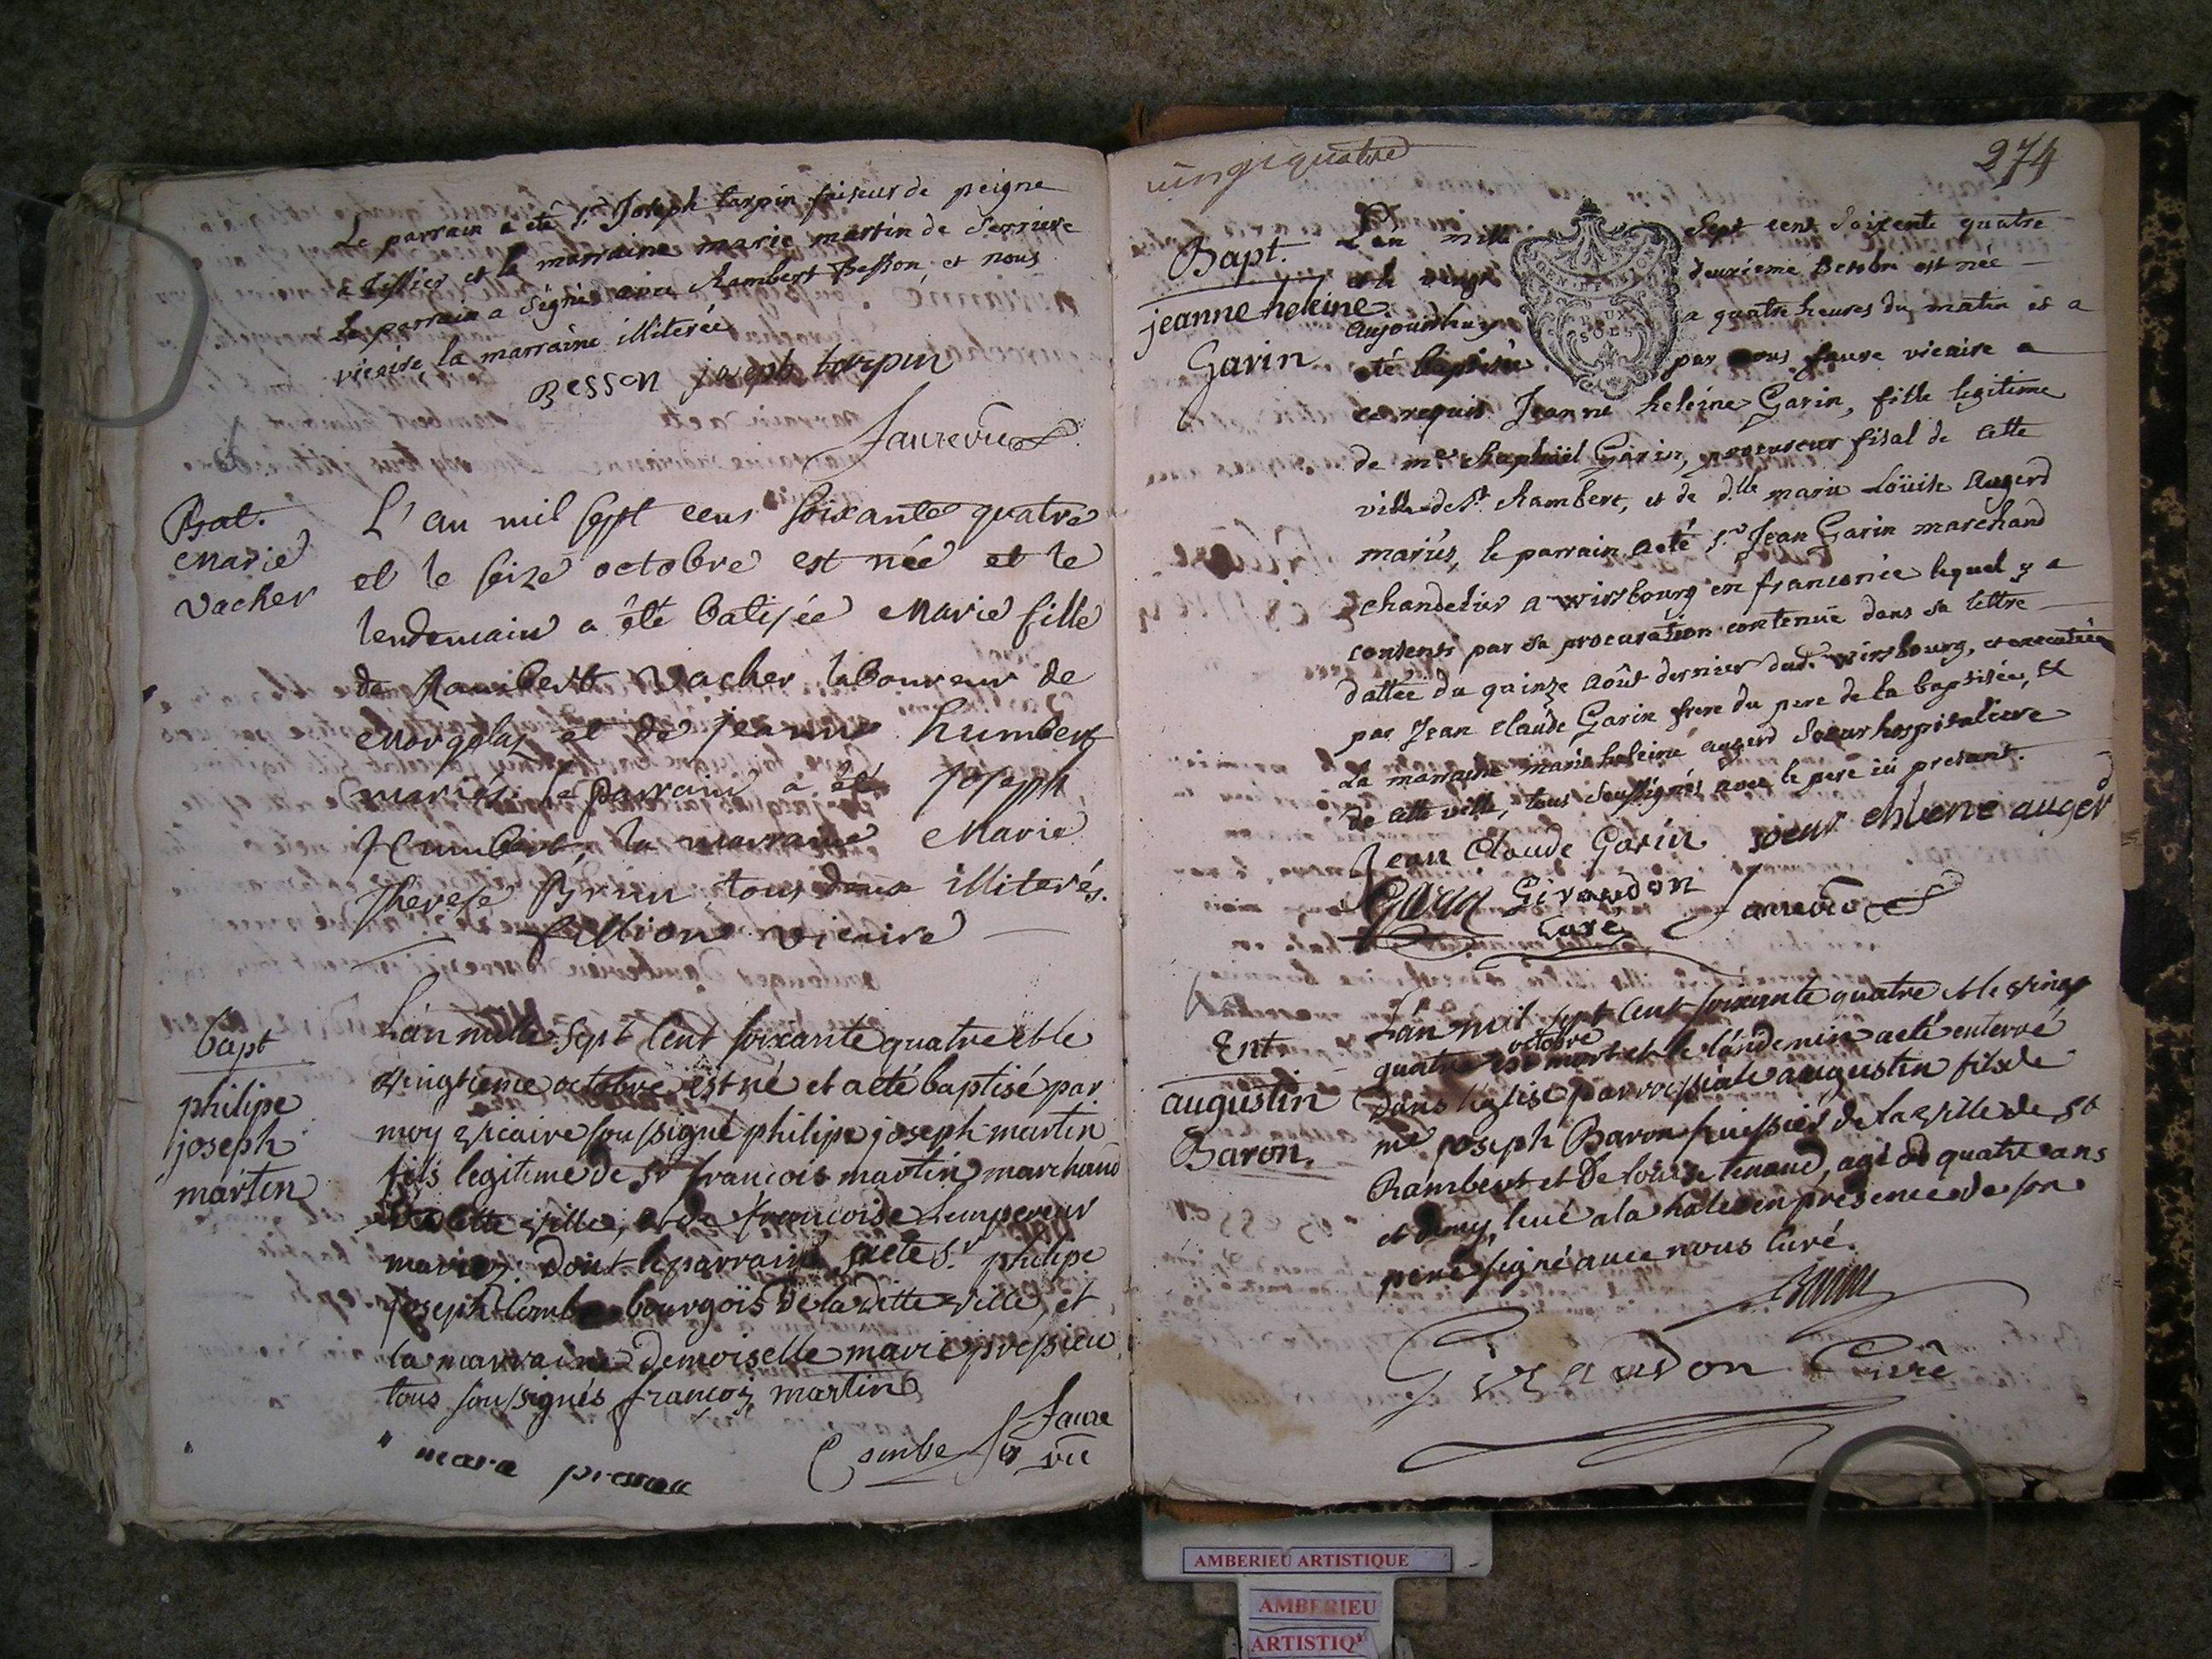 Le parrain a été Sr Joseph tarpin faiseur de peigne
a et la marraine marie martin de Serriere
Le parrain a Signé avec Rambert Besson, et nous
vicaire, la marraine illiterée
Besson joseph tarpin
faure vic
Bat.
Marie
Vacher
L'an mil sept cens soixante quatre
et le seize octobre est née et le
lendemain a été batisée Marie fille
de Rambert Vacher laboureur de
Morgelas et de jeanne humbert
mariés. le parrain a été joseph
Humbert, la marraine Marie
Therese Brun tous deux illiterés.
fillion vicaire
bapt
philipe
joseph
martin
L'an mille sept cent soixante quatre et le
vingtieme octobre est né et a eté baptisé par
moy vicaire soussigné philipe joseph martin
fils legitime de sr françois martin marchand
de cette ville, et de françoise Lempereur
mariez. dont le parrain a eté Sr philipe
joseph Combe bourgois de la ditte ville, et
la marraine demoiselle marie pressieu
tous soussignés françois martin
Combe faure
vic
maria
vingt quatre
274
Bapt.
jeanne heleine
Garin
L'an mille Sept cent Soixente quatre
et le vingt deuxieme octobre est née
aujourdhuy a quatre heures du matin et a
été baptisée par nous faure vicaire a
ce requis Jeanne heleine Garin, fille legitime
de me Raphaël Garin, procureur fisal de cette
ville de St Rambert, et de dlle marie Loüise Augerd
mariés, le parrain a eté Sr Jean Garin marchand
chandelier a Wirsbourg en franconie lequel y a
consenti par sa procuration contenüe dans sa lettre
dattée du quinze Août dernier dud. Wirsbourg, et executée
par Jean Claude Garin frere du pere de la baptisée, et
La marraine marie heleine augerd Soeur hospitaliere
de cette ville, tous Soussignés avec le pere ici present.
Jean Claude Garin soeur helene auger
Garin Giraudon faure vic
Curé
Ent
augustin
Baron.
L'an mil sept cent soixante quatre et le vingt
octobre
quatre est mort et le landemin a eté enterré
dans l'eglise parroissiale augustin fils de
me joseph Baron huissier de la ville de St
Rambert et de loüise tenand, agé de quatre ans
et demy, levé a la hale en presence de son
pere signé avec nous curé.
Baron
Giraudon Curé
AMBERIEU ARTISTIQUE
AMBERIEU
ARTISTIQ